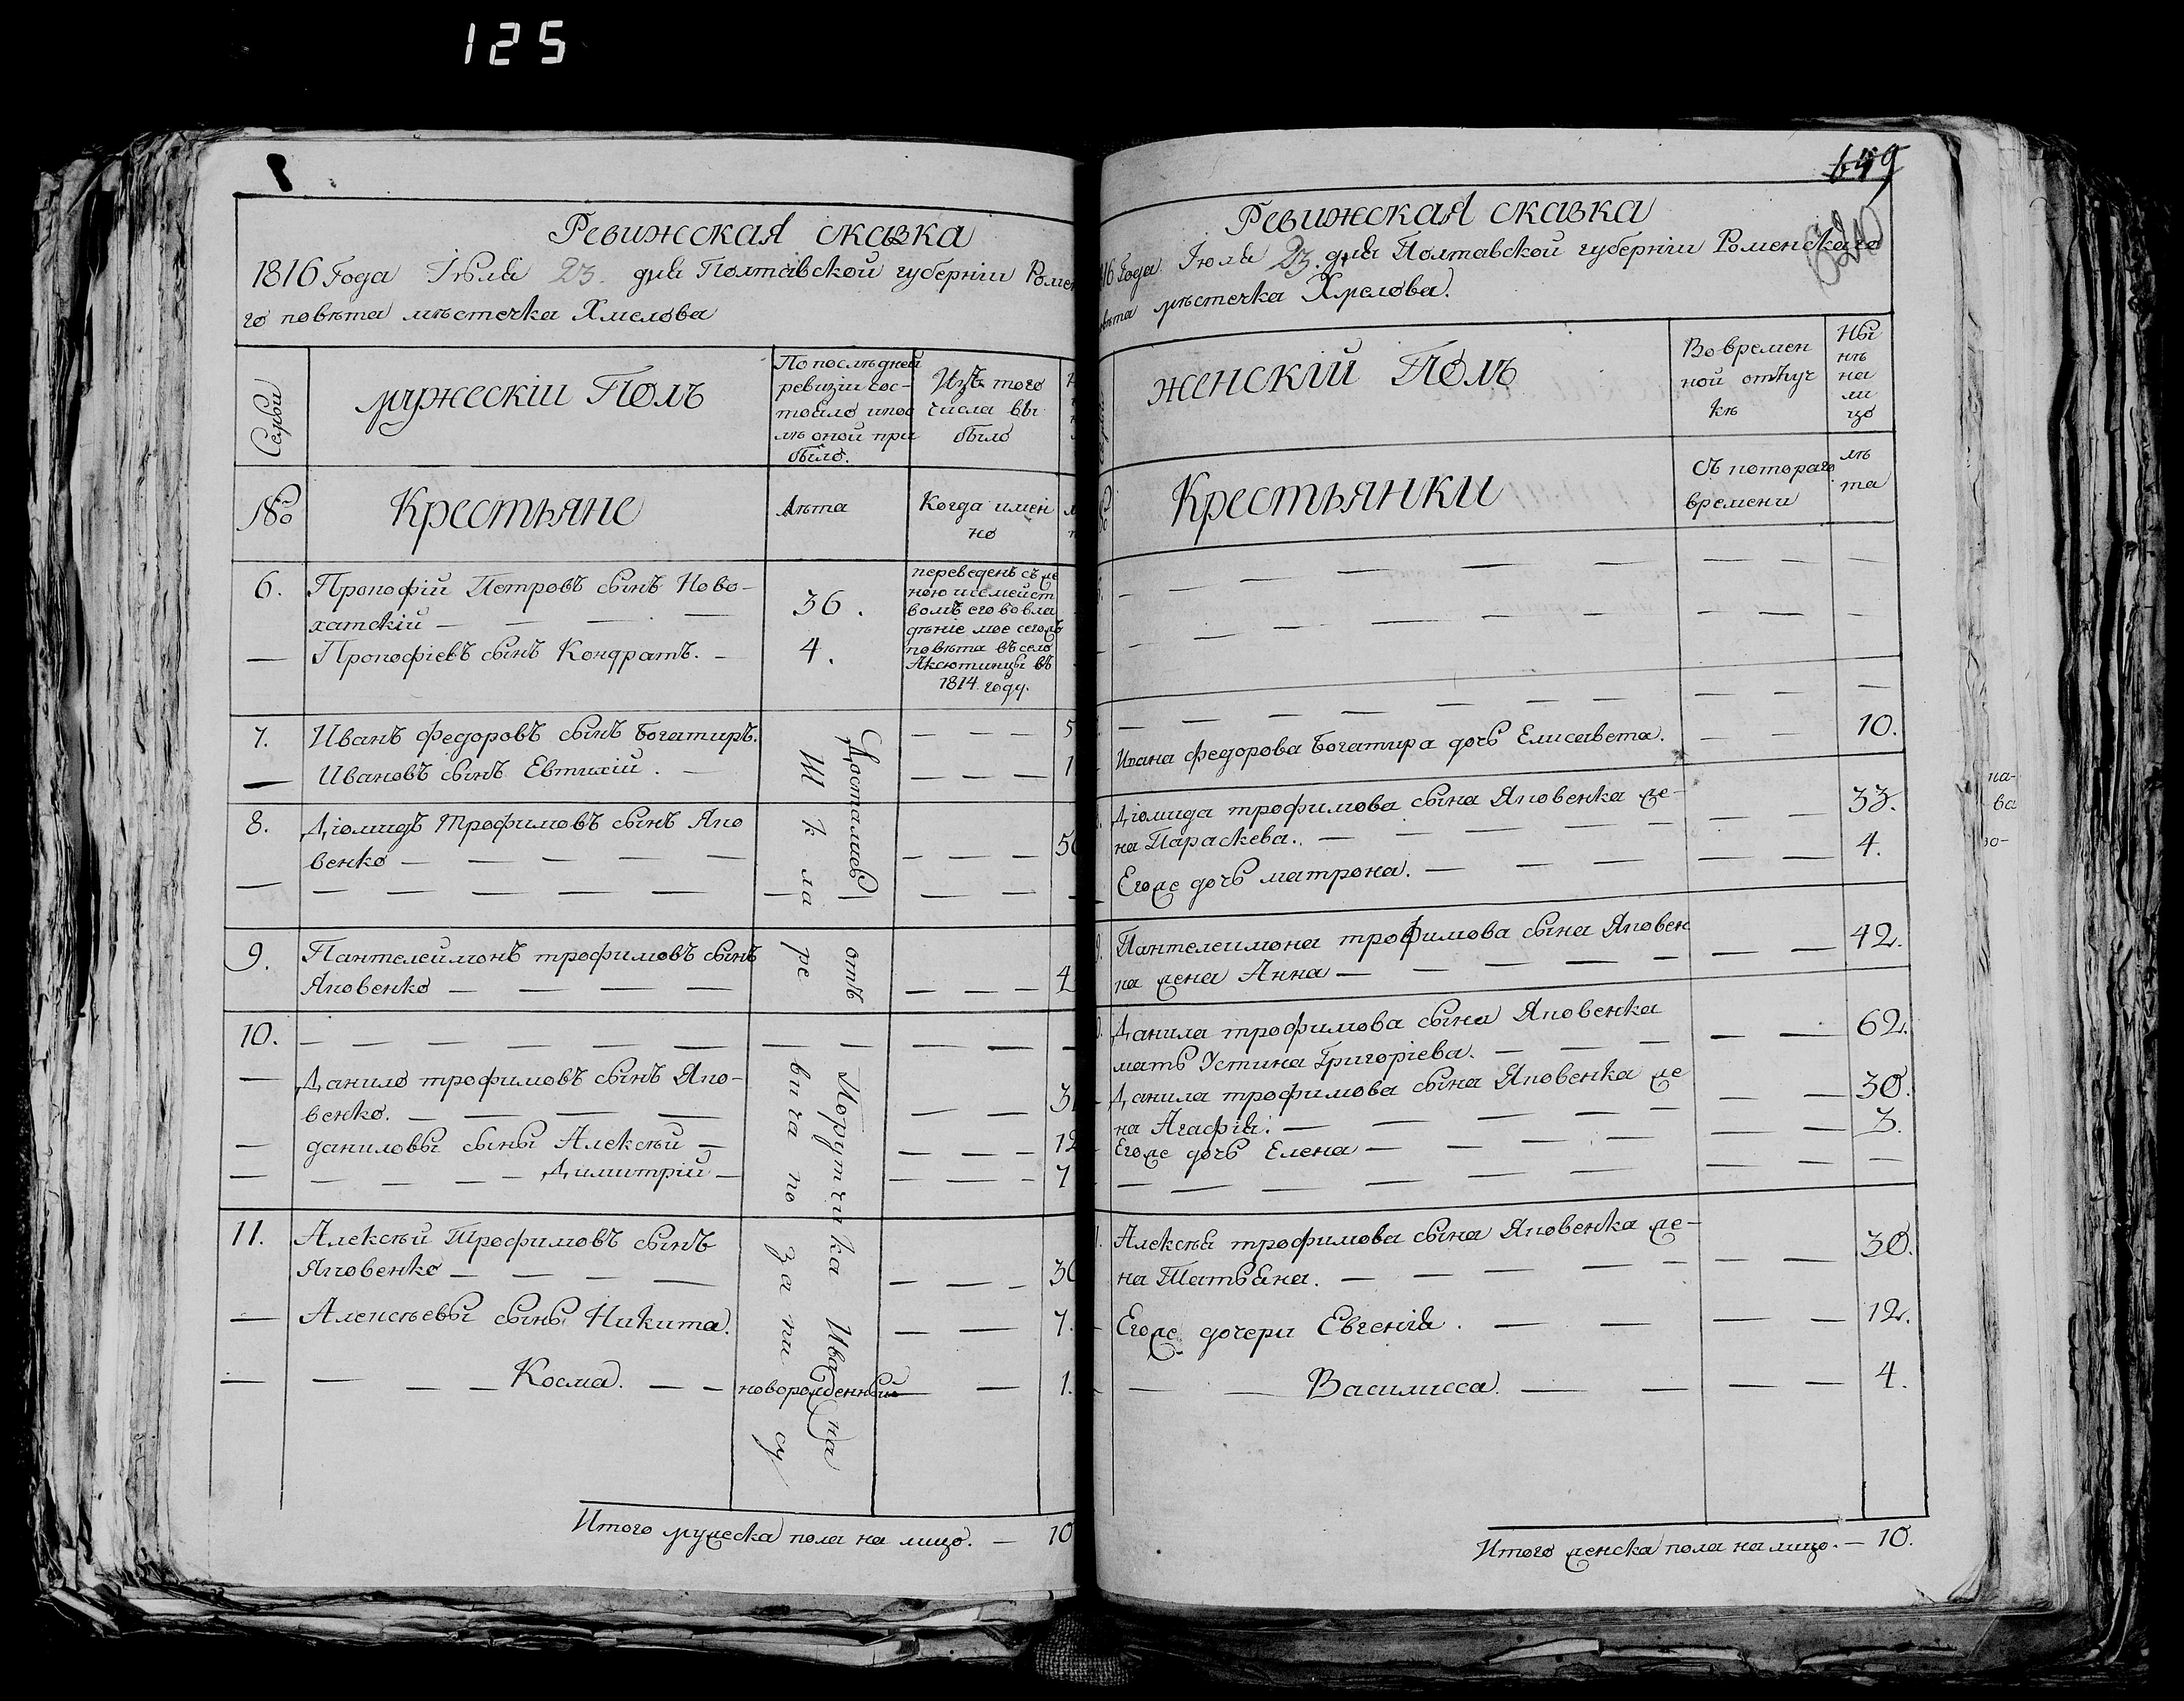 125
Ревижская сказка
1816 Года Іюля 23. дня Полтавской губерніи Ромен
го повѣта мѣстечка Хмелова
Семьи
мужескіи Полъ
По послѣдней
ревизіи сос-
тояло ипос
лѣ оной при
было.
Изъ того
числа вы
было
№
Крестьяне
Лѣта
Когда имен
но
6. Прокофій Петровъ сынъ Ново-
хатскій — — — —
36.
— Прокофіевъ сынъ Кондратъ. —
4.
переведенъ съ же
ною исемейст
вомъ его во вла
дѣніе мое сегожъ
повѣта въ село
Аксютинцы въ
1814 году.
7. Иванъ Федоровъ сынъ Богатиръ. — — — 5
— Ивановъ сынъ Евтихій. — — — — 1
8. Діомидъ Трофимовъ сынъ Яко
венко — — — — — — — — 50
— — — — — — — — — —
9. Пантелеймонъ трофимовъ сынъ
Яковенко — — — — — — — 4
10. — — — — — — — — — —
— Данило трофимовъ сынъ Яко-
венко. — — — — — — 3
— даниловы сыны Алексѣй — — — — 12
— — — — — Димитрій — — — — 7
11. Алексѣй Трофимовъ сынъ
Яковенко — — — — — — — 30
— Алексѣевы сыны Никита. — — 7.
— — — — Косма. — — новорожденный — — 1.
Достались отъ Порутчика Ива на
Ш к ла ре ви ча по за пи си
Итого мужеска пола на лицо. — 10
649
640
Ревижская сказка
816 Года Іюля 23. дня Полтавской губерніи Роменскаго
овѣта мѣстечка Хмелова.
женскій Полъ
Во времен
ной отлуч
кѣ
Ны
нѣ
на
ли
цо
Крестьянки
Съ котораго
времени
лѣ
та
— — — — — — — — —
— — — — — — — — —
— — — — — — — — —
Ивана федорова Богатира дочь Елисавета. — — 10.
Діомида трофимова сына Яковенка же-
на Параскева. — — — — — — — 33.
Егоже дочь матрона. — — — — — 4.
Пантелеимона трофимова сына Яковен
ка жена Анна — — — — — — — 42.
Данила трофимова сына Яковенка
мать Устина Григоріева. — — — — — 62.
Данила трофимова сына Яковенка же
на Агафія. — — — — — — — 30.
Егоже дочь Елена — — — — — — — 3.
— — — — — — — — —
Алексѣя трофимова сына Яковенка же-
на Татьяна. — — — — — — — 30.
Егоже дочери Евгенія. — — — — — 12.
— — Василисса. — — — — 4.
Итого женска пола на лицо. — 10.